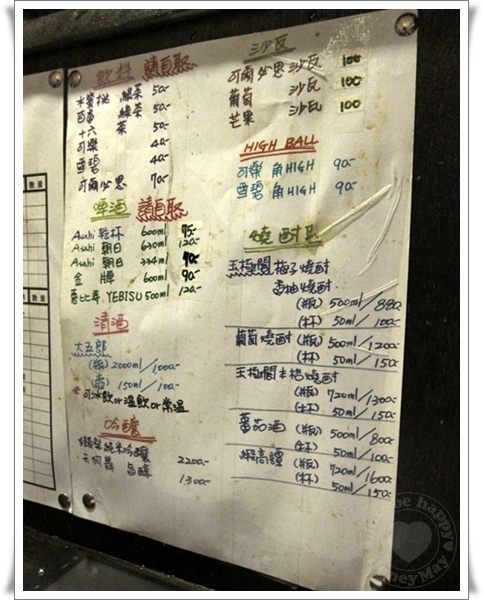 飲料 請自取
水蜜桃 綠茶 50.-
百香 綠茶 50.-
十六 茶 50.-
可樂 40.-
雪碧 40.-
可爾必思 70.-
啤酒 請自取
Asahi 乾杯 600ml 75.-
Asahi 朝日 630ml 120.-
Asahi 朝日 334ml 70.-
金牌 600ml 90.-
惠比寿 YEBISU 500ml 120.-
清酒
大五郎
(瓶) 2000ml/1000.-
(壺) 150ml/100.-
可冰飲or溫飲or常溫
吟釀
純米吟釀 2200.-
天狗舞 旨醇 1300.-
沙瓦
可爾必思 沙瓦 100
葡萄 沙瓦 100
芒果 沙瓦 100
HIGH BALL
可樂 角HIGH 90.-
雪碧 角HIGH 90.-
燒酎
玉極閣 梅子燒酎
香柚燒酎
(瓶) 500ml/880
(杯) 50ml/100.-
葡萄燒酎 (瓶) 500ml/1200.-
(杯) 50ml/150.-
玉極閣本格燒酎
(瓶) 720ml/1300.-
(杯) 50ml/150.-
蕃茄酒 (瓶) 500ml/800.-
(杯) 50ml/100.-
(瓶) 720ml/1600.-
(杯) 50ml/150.-
數量
數量
be happy
neyMay